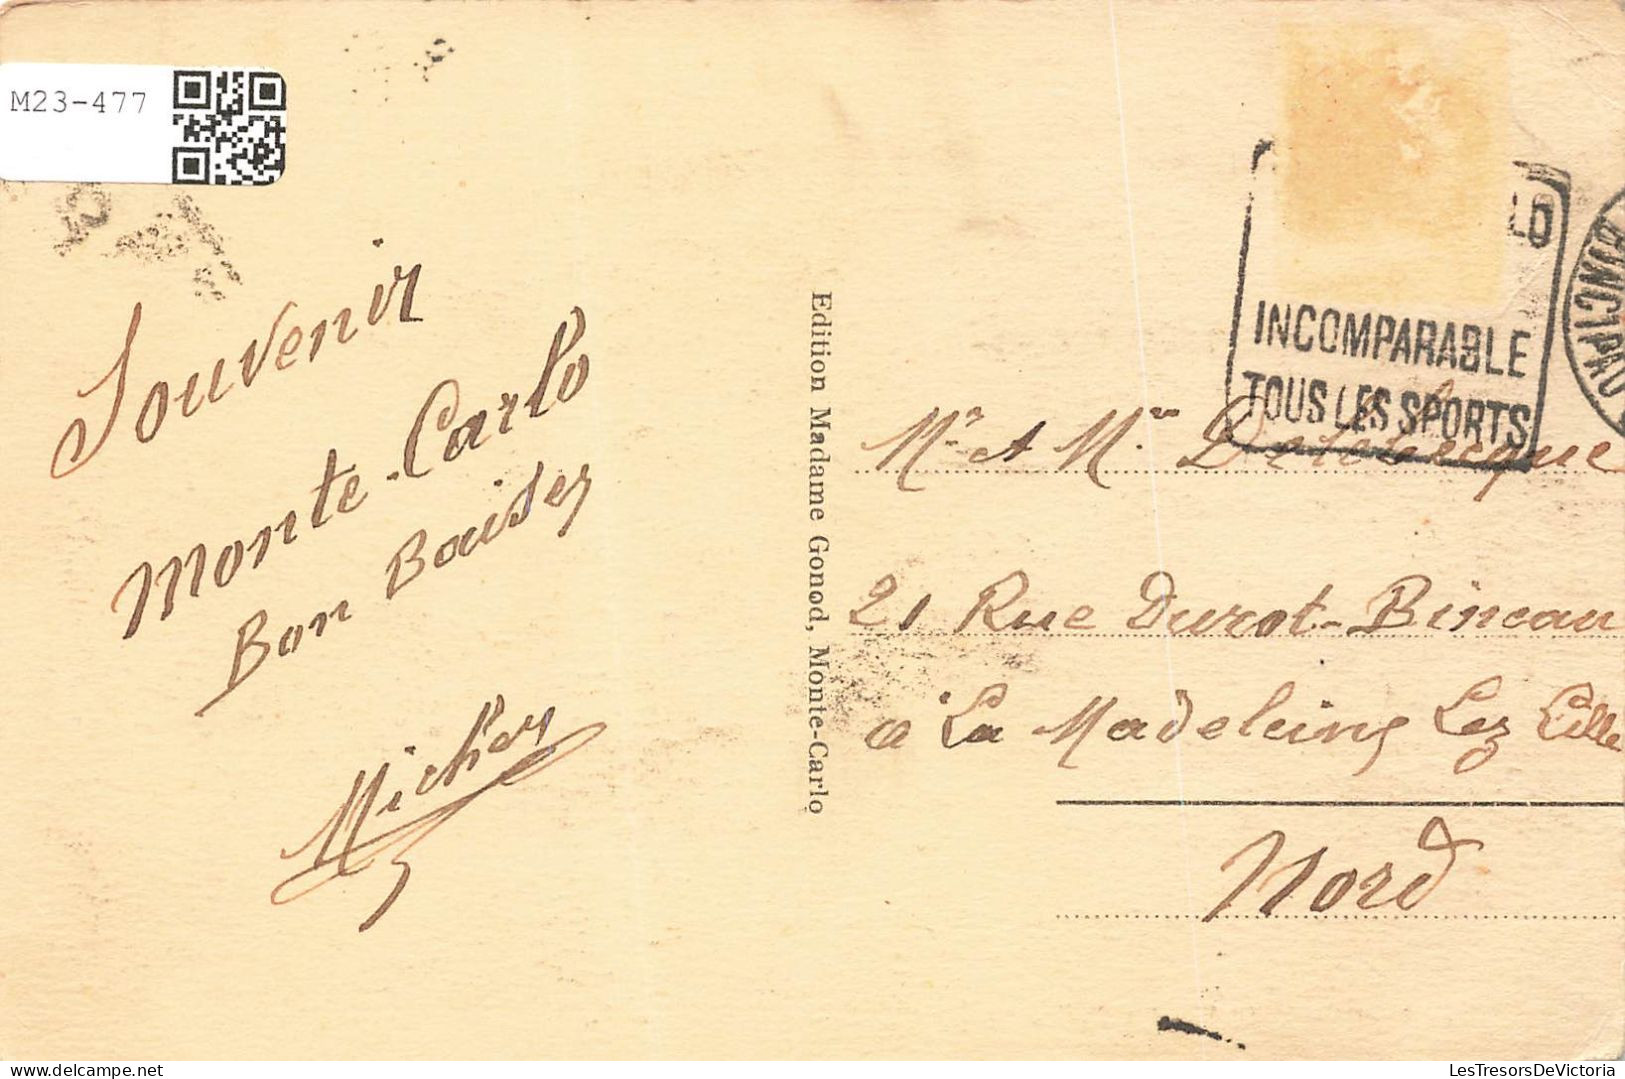 M23-477
Souvenir
Monte-Carlo
Bon Baiser
Edition Madame Gonod, Monte-Carlo
LO
INCOMPARABLE
TOUS LES SPORTS
Mr et Mme Delebecque
21 Rue Durot-Bineau
a La Madeleine Lez Lille
Nord
delcampe.net
LesTresorsDeVictoria